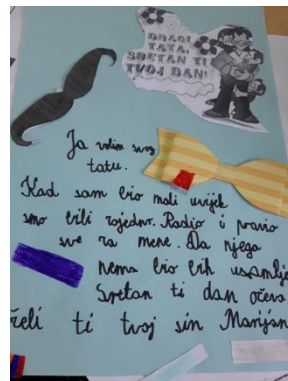 DRAGI
TATA,
SRETAN TI
TVOJ DAN!
Ja volim svog
tatu.
Kad sam bio mali uvijek
smo bili zajedno. Radio i pravio
sve za mene. Da njega
nema bio bih usamlje
Sretan ti dan očeva
želi ti tvoj sin Marijan